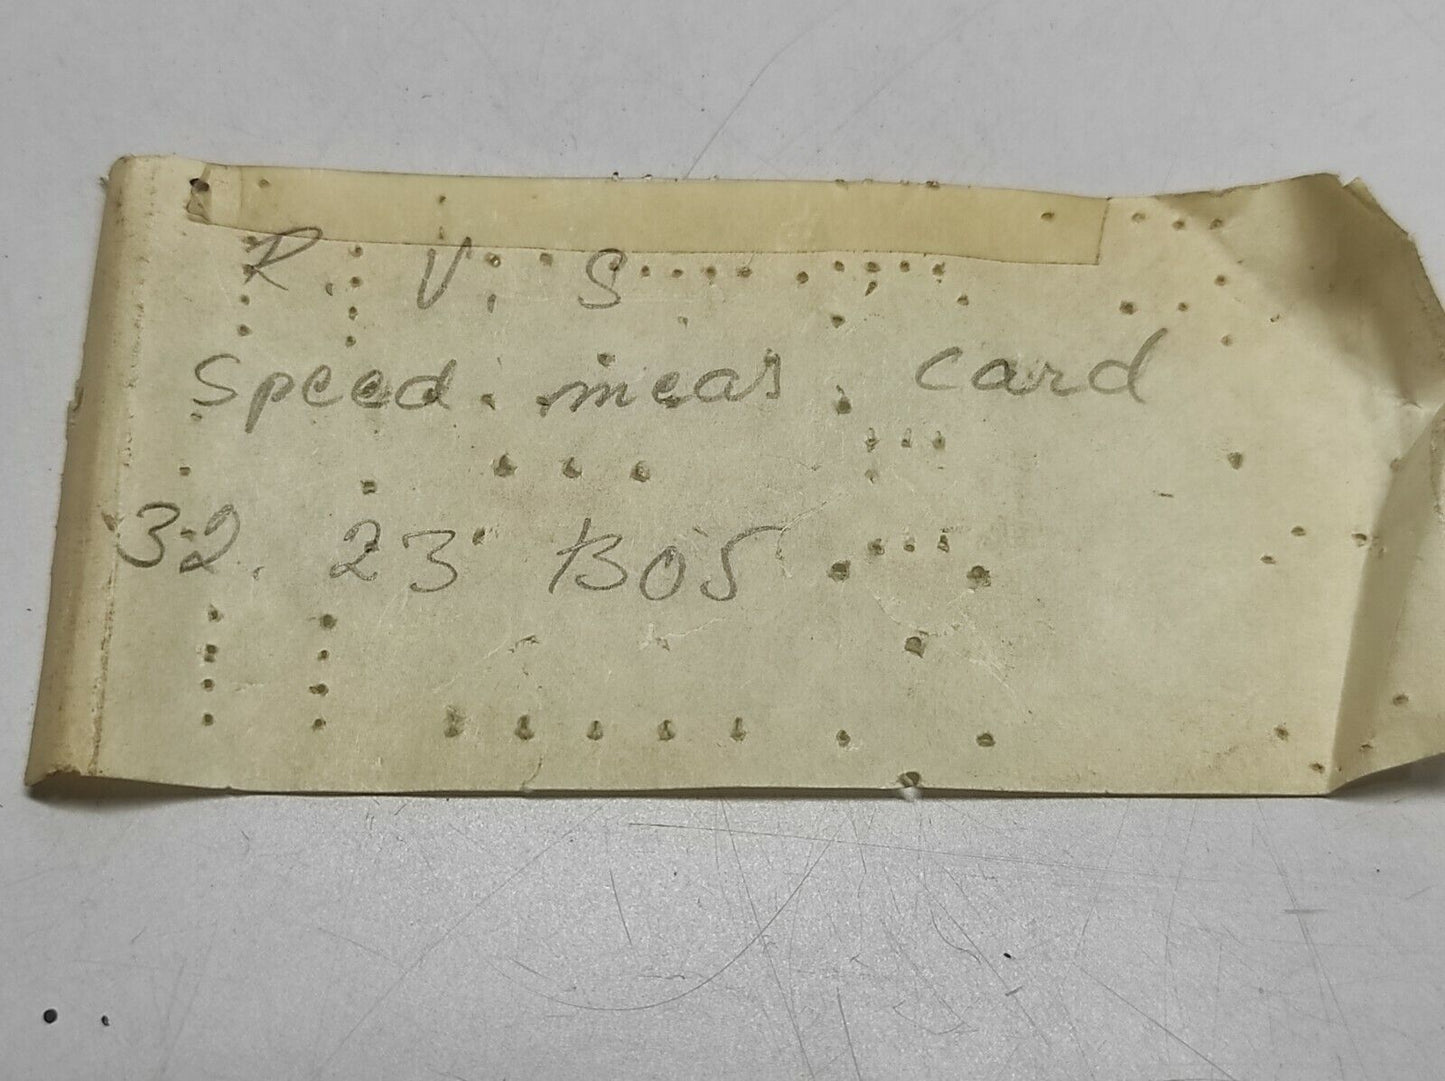 R. V. S
Speed. meas. card
32. 23 B05